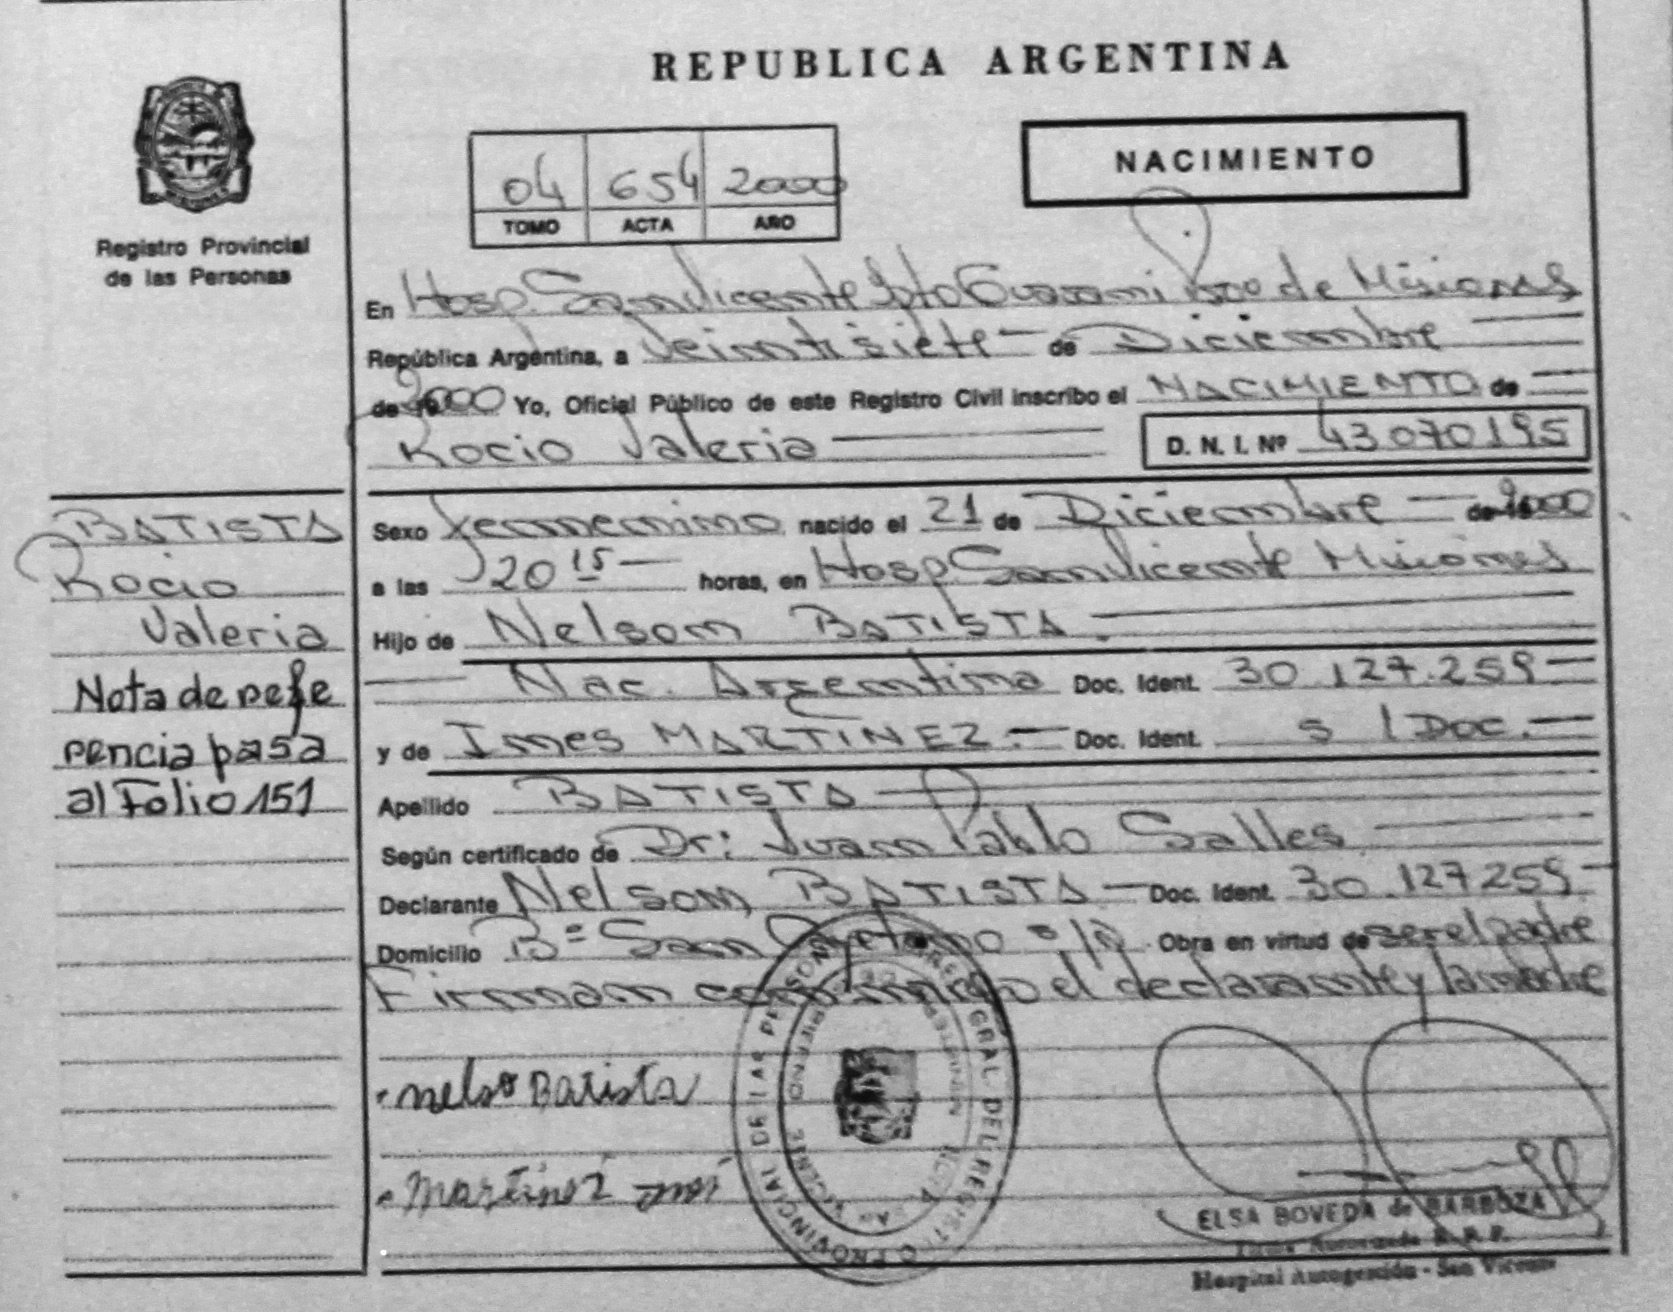 REPUBLICA ARGENTINA
NACIMIENTO
04 654 2000
TOMO ACTA AÑO
Registro Provincial
de las Personas
En Hosp. San Vicente Dto Guarani Pcia de Misiones
República Argentina, a Veintisiete de Diciembre
de 2000 Yo, Oficial Público de este Registro Civil inscribo el NACIMIENTO de
Rocio Valeria
D. N. I. Nº 43070195
BATISTA
Rocio
Valeria
Nota de refe
rencia pasa
al Folio 151
Sexo femenino nacido el 21 de Diciembre de 2000
a las 20 15 horas, en Hosp. San Vicente Misiones
Hijo de Nelson BATISTA.
Nac. Argentina Doc. Ident. 30.127.259
y de Ines MARTINEZ. Doc. Ident. s/Doc.
Apellido BATISTA
Según certificado de Dr: Juan Pablo Salles
Declarante Nelson BATISTA Doc. Ident. 30.127259
Domicilio Bº San Cayetano s/n Obra en virtud de ser el padre
Firman conmigo el declarante y la madre
nelso Batista
martinez
REG. GRAL. DEL REGIST
O PROVINCIAL DE LAS PERSONAS
SAN VICENTE
ELSA BOVEDA de BARBOZA
R. P. P.
Hospital Autogestión - San Vicente